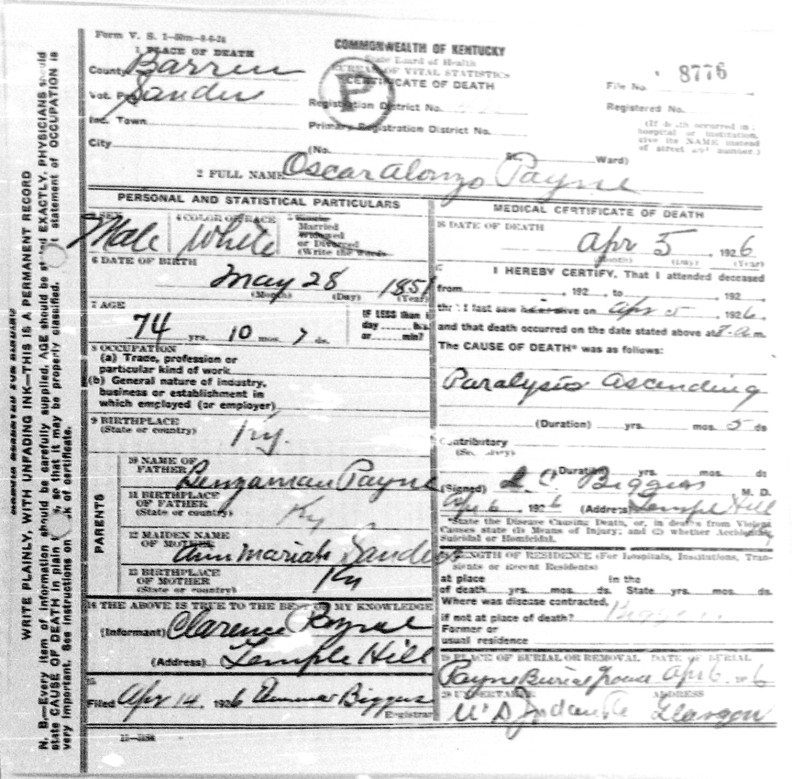 Form V. S. 1-50m-8-6-24
COMMONWEALTH OF KENTUCKY
State Board of Health
BUREAU OF VITAL STATISTICS
CERTIFICATE OF DEATH
P
8776
File No.
Registered No.
(If death occurred in a hospital or institution, give its NAME instead of street and number.)
1 PLACE OF DEATH
County Barren
Vot. Pct Sanders
Inc. Town
City
Registration District No.
Primary Registration District No.
(No. St., Ward)
2 FULL NAME Oscar Alonzo Payne
PERSONAL AND STATISTICAL PARTICULARS
Male
4 COLOR OR RACE
White
Married
Widowed
or Divorced
(Write the word)
6 DATE OF BIRTH
May 28 1851
(Month) (Day) (Year)
7 AGE
74 yrs. 10 mos. 7 ds.
IF LESS than 1
day hrs.
or min?
8 OCCUPATION
(a) Trade, profession or
particular kind of work
(b) General nature of industry,
business or establishment in
which employed (or employer)
9 BIRTHPLACE
(State or country)
Ky.
PARENTS
10 NAME OF
FATHER Benjaman Payne
11 BIRTHPLACE
OF FATHER
(State or country) Ky
12 MAIDEN NAME
OF MOTHER
Ann Mariah Sanders
13 BIRTHPLACE
OF MOTHER
(State or country) Ky
14 THE ABOVE IS TRUE TO THE BEST OF MY KNOWLEDGE
(Informant) Clarence Payne
(Address) Temple Hill
15
Filed Apr 14, 1926 Biggers
Registrar
MEDICAL CERTIFICATE OF DEATH
16 DATE OF DEATH
Apr 5, 1926
(Month) (Day) (Year)
I HEREBY CERTIFY, That I attended deceased
from , 192 , to , 192 ,
that I last saw alive on Apr 5, 1926,
and that death occurred on the date stated above at 7 a.m.
The CAUSE OF DEATH* was as follows:
Paralysis ascending
(Duration) yrs. mos. 5 ds
Contributory
(Secondary)
(Duration) yrs. mos. ds.
(Signed) C Biggers M. D.
Apr 6, 1926 (Address) Temple Hill
*State the Disease Causing Death, or, in deaths from Violent
Causes state (1) Means of Injury; and (2) whether Accidental,
Suicidal or Homicidal.
LENGTH OF RESIDENCE (For Hospitals, Institutions, Transients or Recent Residents)
at place In the
of death yrs. mos. ds. State yrs. mos. ds.
Where was disease contracted,
if not at place of death?
Former or
usual residence
19 PLACE OF BURIAL OR REMOVAL DATE OF BURIAL
Payne Burial Ground Apr 6, 1926
20 UNDERTAKER ADDRESS
Glasgow
WRITE PLAINLY, WITH UNFADING INK—THIS IS A PERMANENT RECORD
N. B.—Every item of information should be carefully supplied. AGE should be stated EXACTLY. PHYSICIANS should
state CAUSE OF DEATH in plain so that it may be properly classified. statement of OCCUPATION is
very important. See instructions on back of certificate.